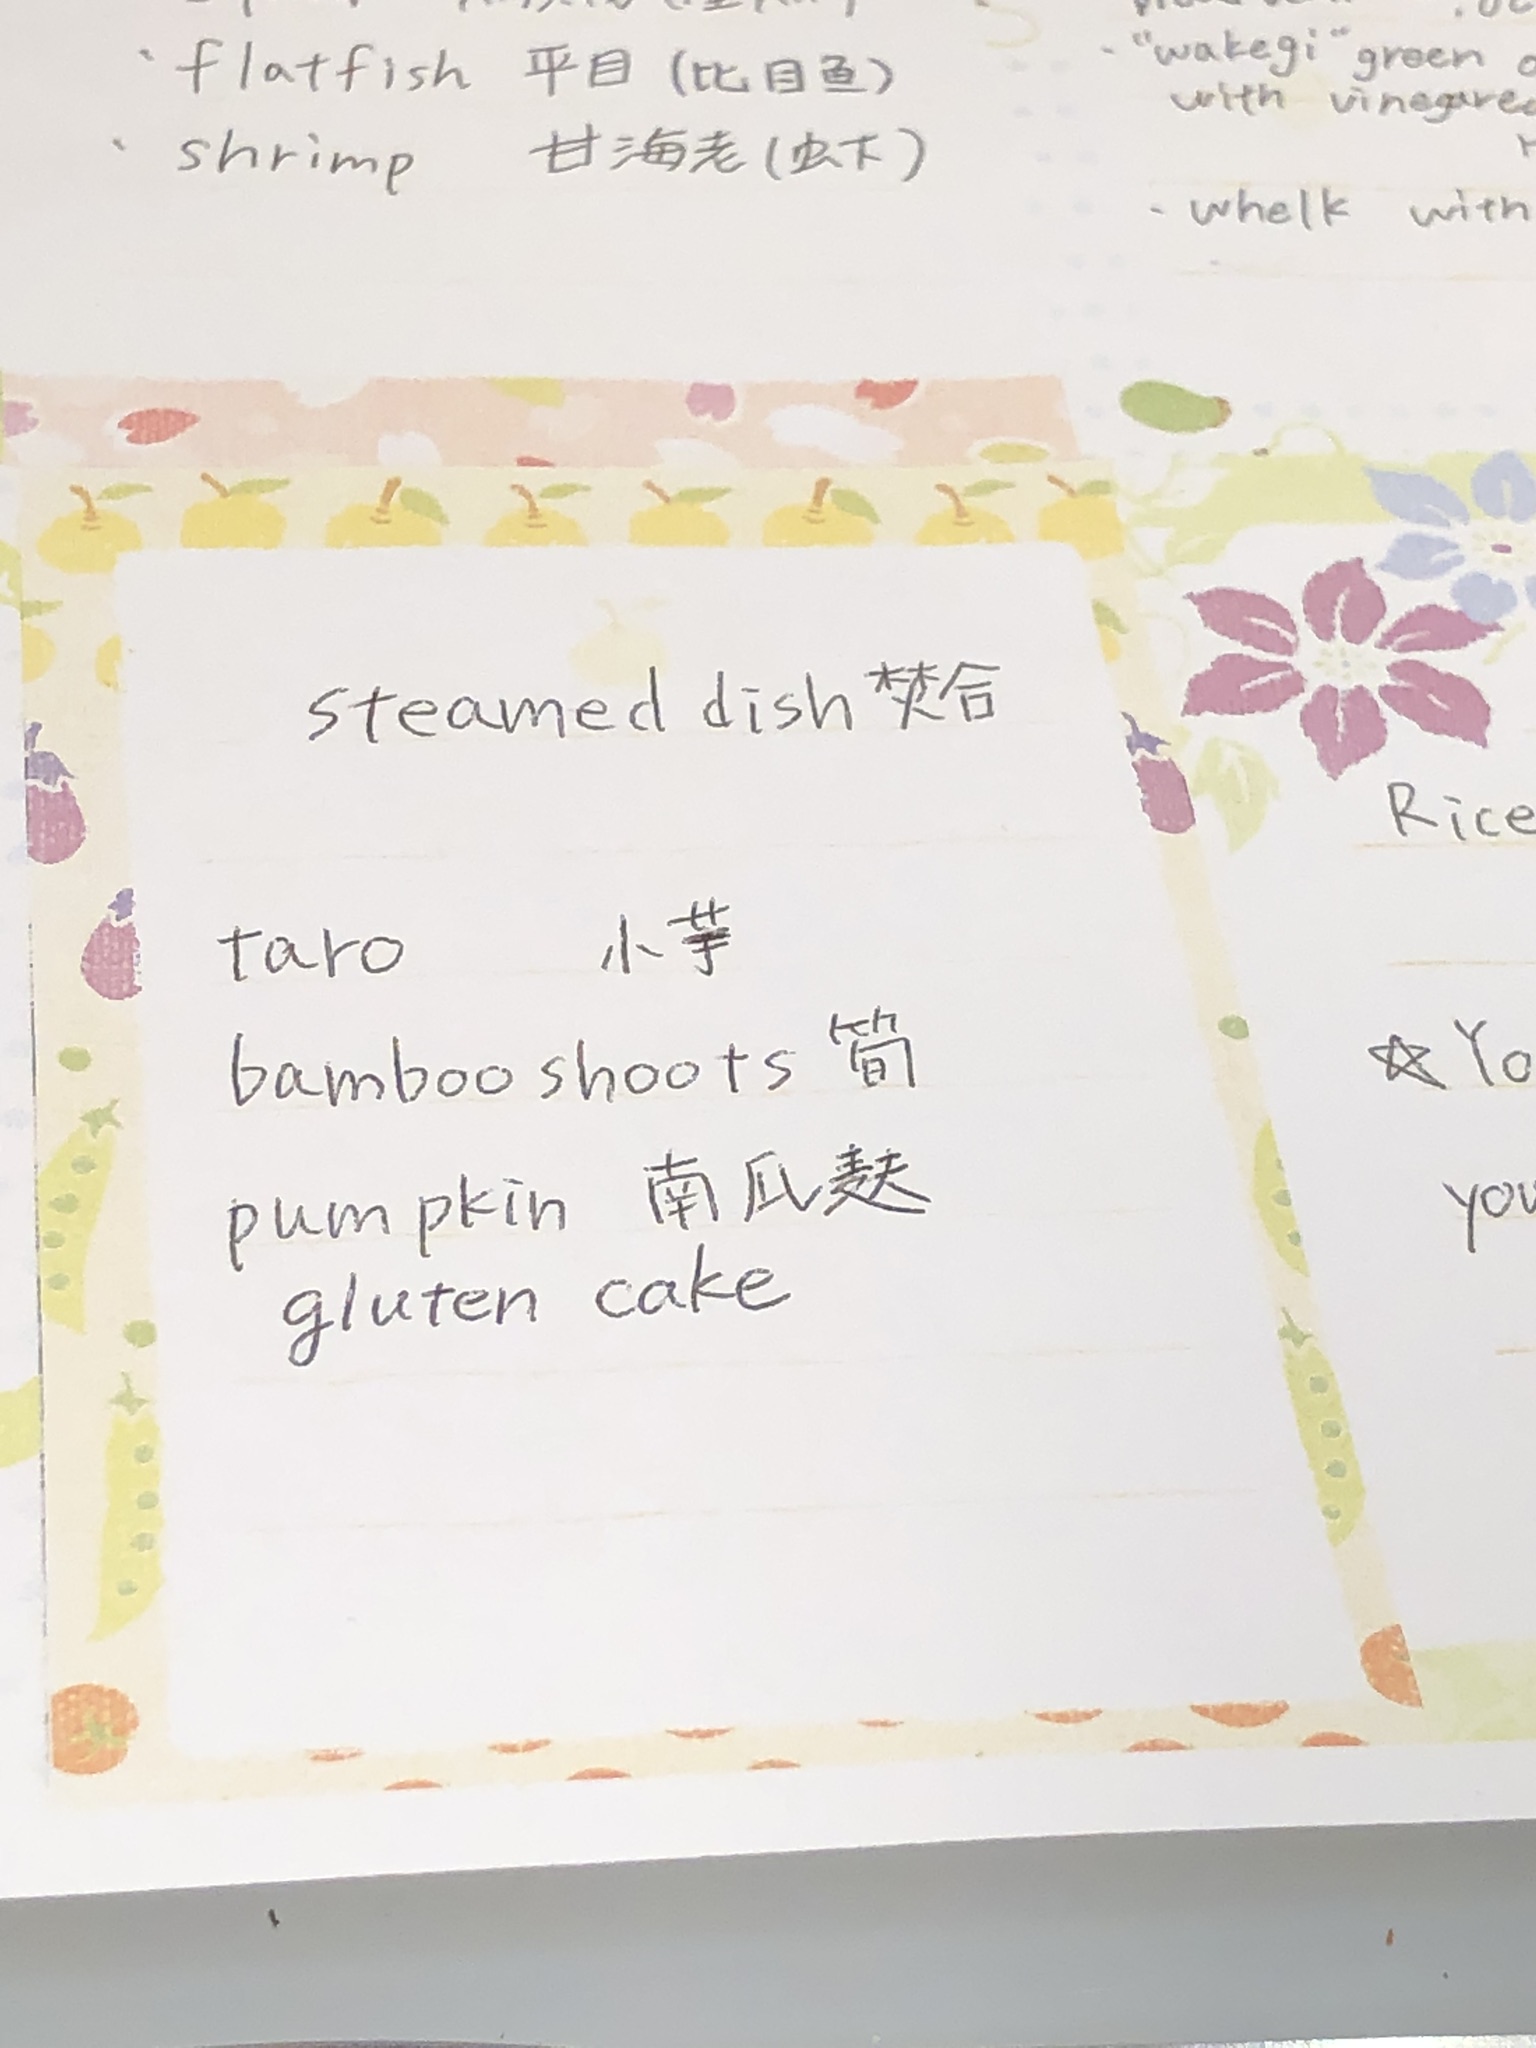 · flatfish 平目 (比目鱼)
· shrimp 甘海老 (虾)
- "wakegi" green
with
- whelk with
steamed dish 焚合
taro 小芋
bamboo shoots 筍
pumpkin 南瓜麩
gluten cake
Rice
☆ Yo
you